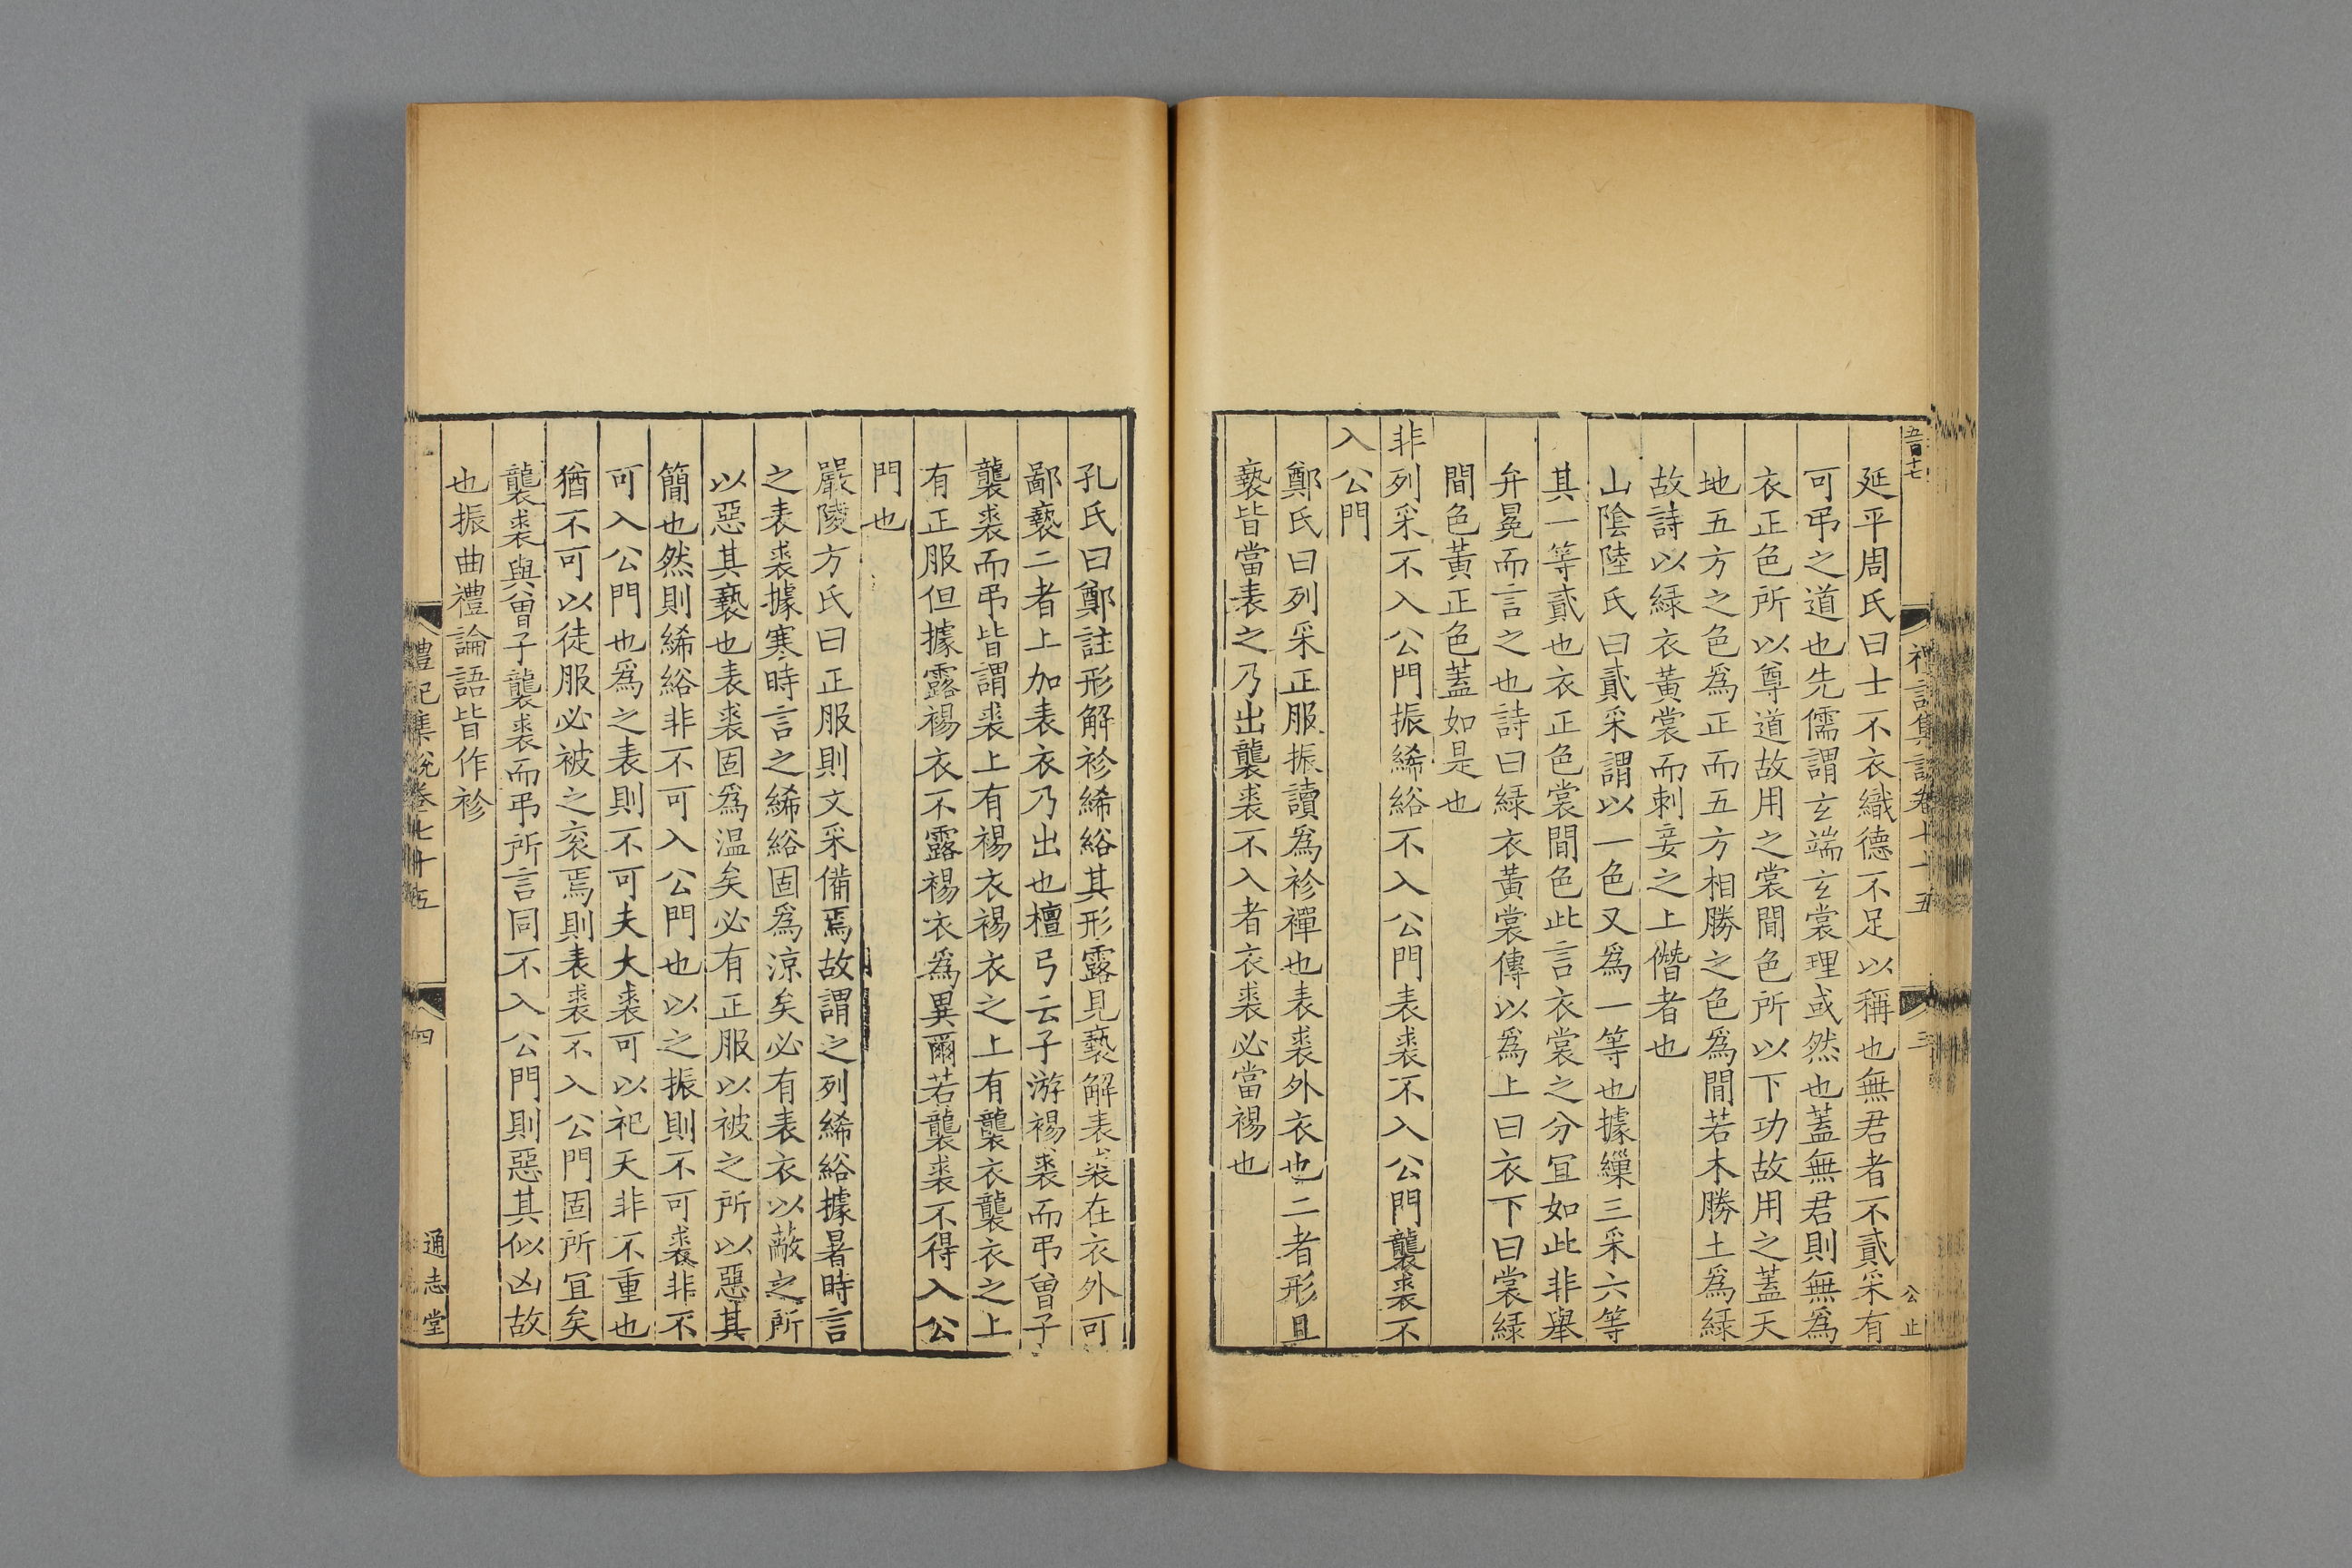 五百十七
禮記集說卷七十五
三
公止
延平周氏曰士不衣織德不足以稱也無君者不貳采有
可弔之道也先儒謂玄端玄裳理或然也蓋無君則無爲
衣正色所以尊道故用之裳間色所以下功故用之蓋天
地五方之色爲正而五方相勝之色爲間若木勝土爲緑
故詩以緑衣黃裳而刺妾之上僭者也
山陰陸氏曰貳采謂以一色又爲一等也據繅三采六等
其一等貳也衣正色裳間色此言衣裳之分宜如此非舉
弁冕而言之也詩曰緑衣黃裳傳以爲上曰衣下曰裳緑
間色黃正色蓋如是也
非列采不入公門振絺綌不入公門表裘不入公門襲裘不
入公門
鄭氏曰列采正服振讀爲袗襌也表裘外衣也二者形且
褻皆當表之乃出襲裘不入者衣裘必當裼也
孔氏曰鄭註形解袗絺綌其形露見褻解表裘在衣外可
鄙褻二者上加表衣乃出也檀弓云子游裼裘而弔曾子
襲裘而弔皆謂裘上有裼衣裼衣之上有襲衣襲衣之上
有正服但據露裼衣不露裼衣爲異爾若襲裘不得入公
門也
嚴陵方氏曰正服則文采備焉故謂之列絺綌據暑時言
之表裘據寒時言之絺綌固爲涼矣必有表衣以蔽之所
以惡其褻也表裘固爲温矣必有正服以被之所以惡其
簡也然則絺綌非不可入公門也以之振則不可裘非不
可入公門也爲之表則不可夫大裘可以祀天非不重也
猶不可以徒服必被之衮焉則表裘不入公門固所宜矣
襲裘與曾子襲裘而弔所言同不入公門則惡其似凶故
也振曲禮論語皆作袗
禮記集說卷七十五
四
通志堂